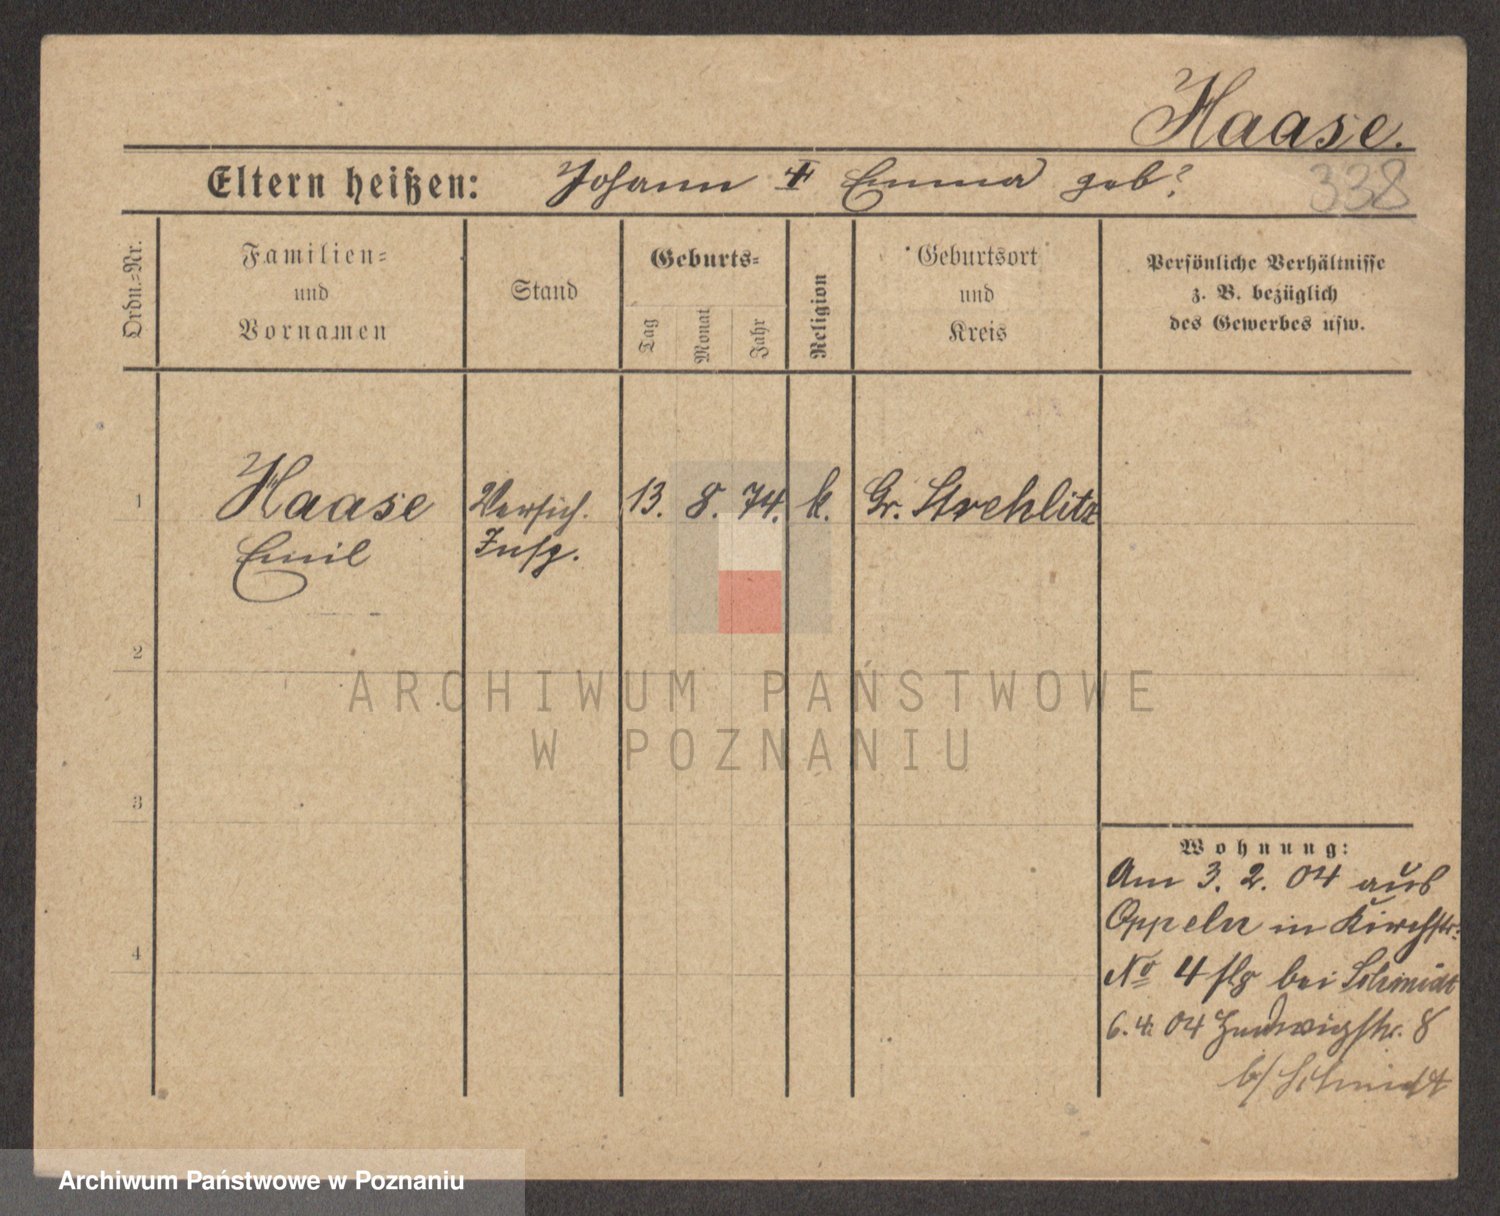 Haase.
Eltern heißen: Johann u Emma geb?
338
Ordn.=Nr.
Familien=
und
Vornamen
Stand
Geburts=
Tag
Monat
Jahr
Religion
Geburtsort
und
Kreis
Persönliche Verhältnisse
z. B. bezüglich
des Gewerbes usw.
1 Haase Versich. 13. 8. 74. k. Gr. Strehlitz
Emil Insp.
2
ARCHIWUM PAŃSTWOWE
W POZNANIU
3
Wohnung:
Am 3. 2. 04 aus
Oppeln in Kirchstr.
4
No 4 bei Schmidt
6. 4. 04 Hedwigstr. 8
b/ Schmidt
Archiwum Państwowe w Poznaniu